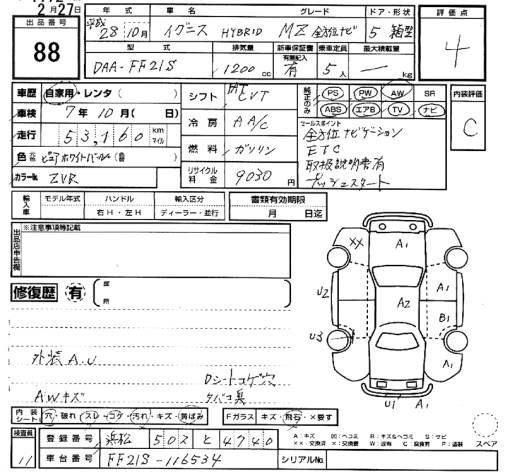 2月27日
出品番号
88
年式
車名
グレード
ドア・形状
評価点
平成 28年10月
イグニス HYBRID
MZ 全方位ナビ
5 箱型
4
型式
排気量
新車保証書
有無記入
乗車定員
最大積載量
DAA-FF21S
1200 cc
有
5人
kg
車歴
自家用・レンタ( )
シフト
CVT
純正のみ
PS PW AW SR
ABS エアB TV ナビ
内装評価
C
車検
7年10月( 日)
冷房
AA/C
セールスポイント
全方位ナビゲーション
ETC
取扱説明書有
プッシュスタート
走行
53,160 km
マイル
燃料
ガソリン
色
元色
ピュアホワイトパール
カラーNo.
ZVR
リサイクル料金
9030円
輸入車
モデル年式
ハンドル
輸入区分
書類有効期限
右H・左H
ディーラー・並行
月 日迄
出品店申告欄
※注意事項等記載
修復歴
有
箇所
XX
A1
A1
U2
A2
B1
U3
A1
U1
A1
外装 A.U
Dシートコゲ穴
AWキズ
タバコ臭
内装シート
穴・破れ スレ・コゲ 汚れ・キズ・黄ばみ
Fガラス キズ・飛石・×要す
検査員
11
登録番号
浜松 502 と 4740
車台番号
FF21S-116534
シリアルNo.
A:キズ
U:ヘコミ
B:キズ&ヘコミ
S:サビ
XX:交換済
×:要交換
W:波
C:腐食
P:塗装
スペア